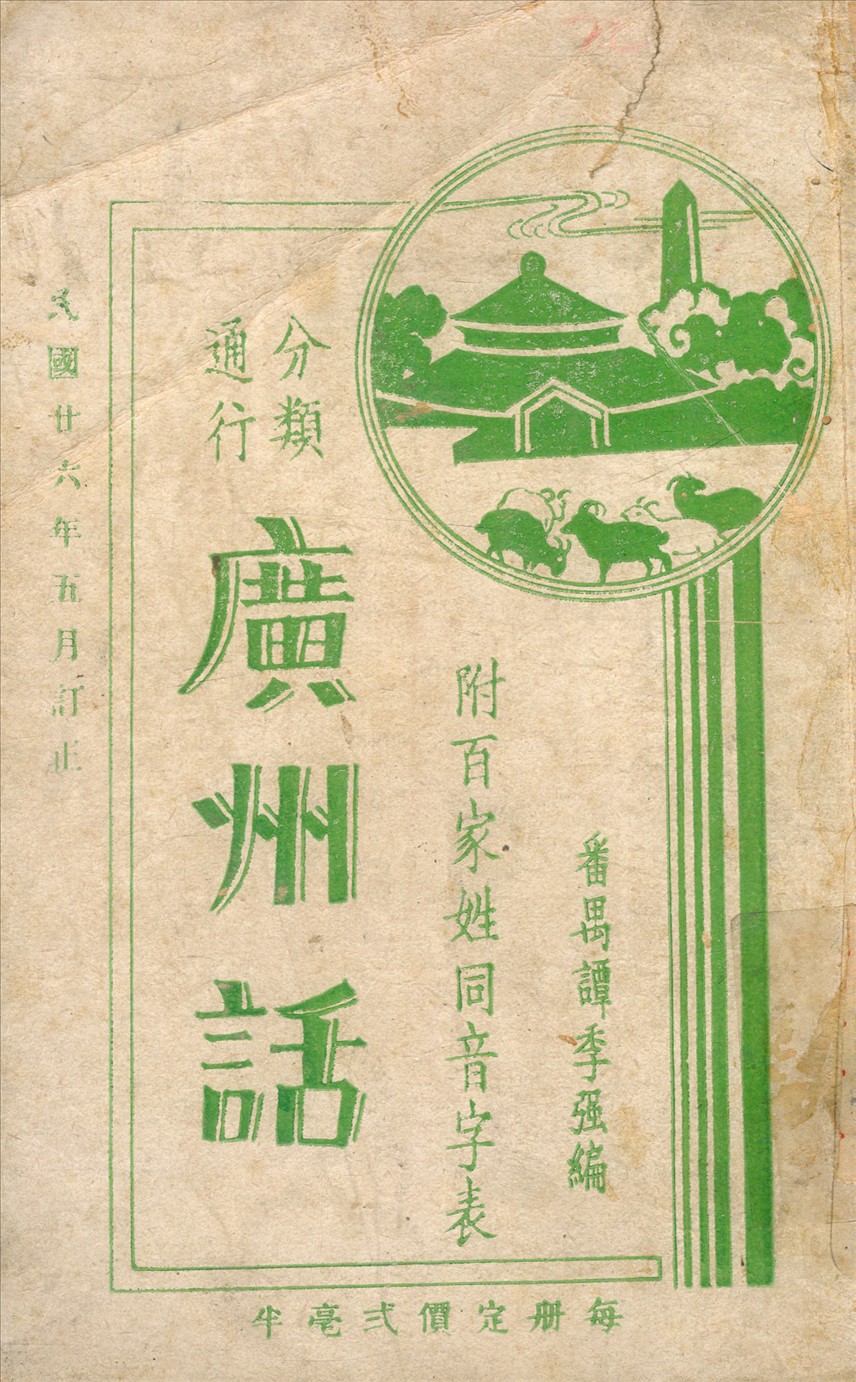 番禺譚季强編
附百家姓同音字表
分類
通行
廣州話
民國廿六年五月訂正
每册定價弍毫半